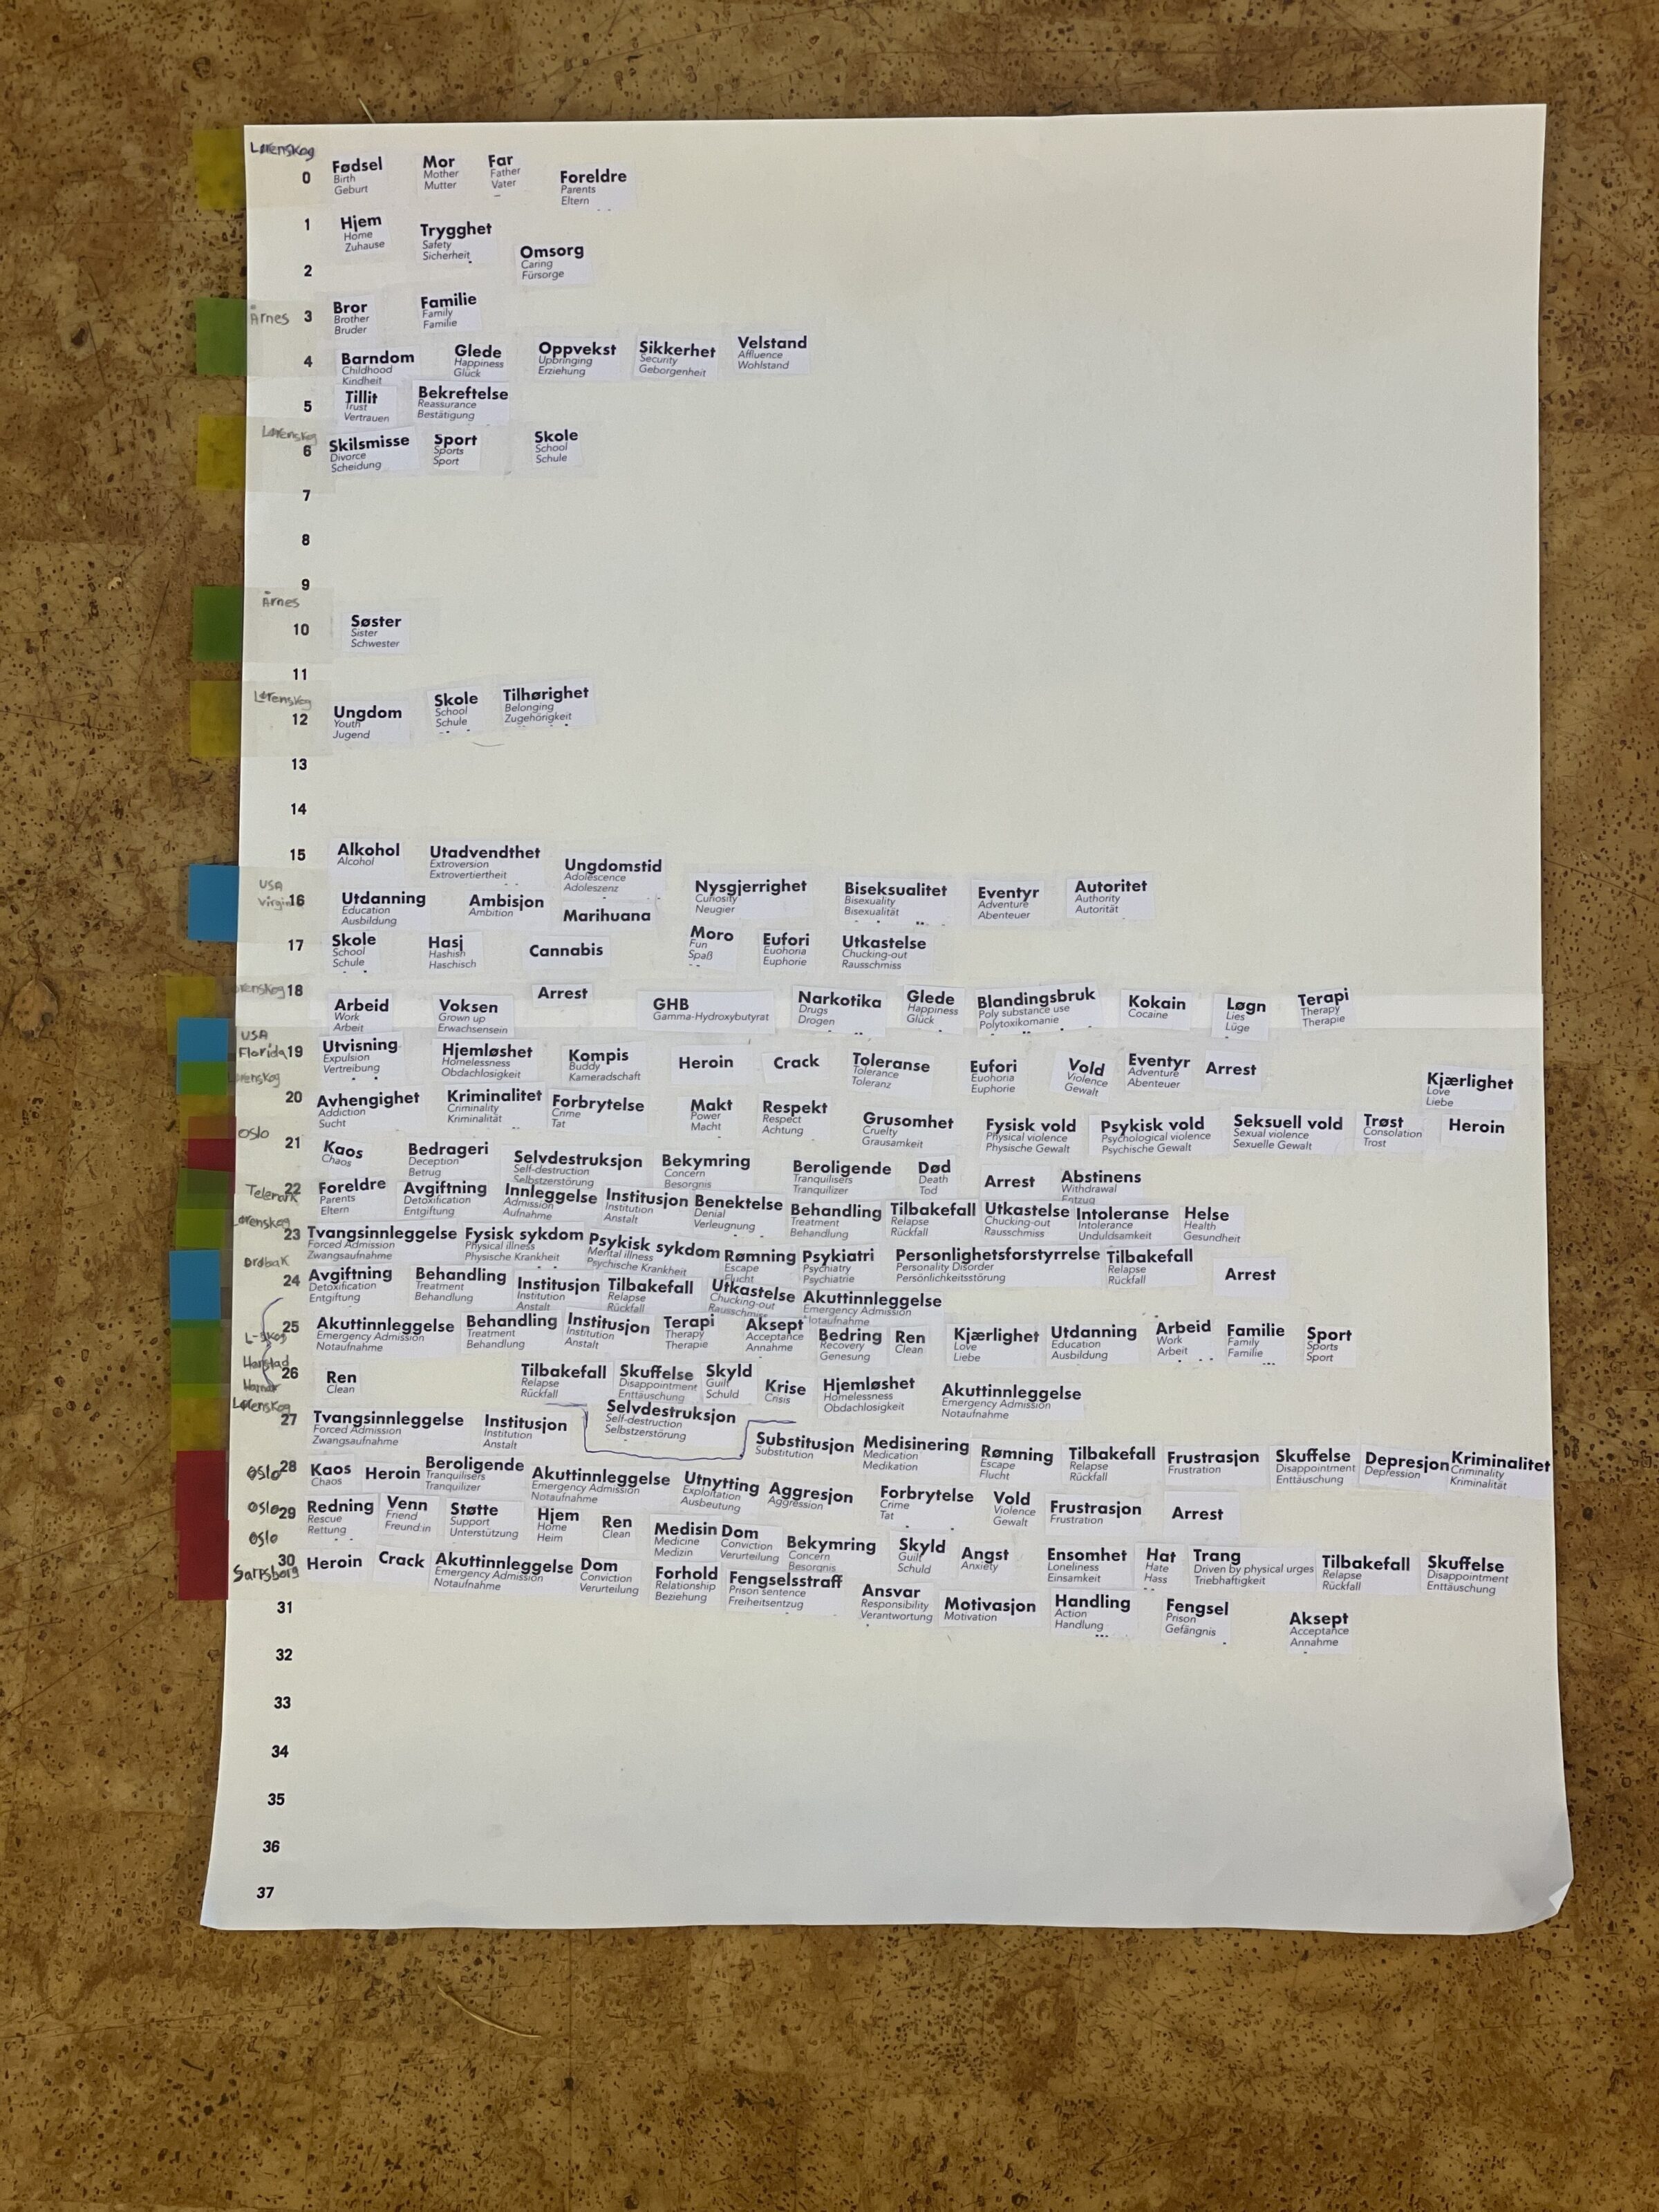 Lørenskog
0 Fødsel Birth Geburt Mor Mother Mutter Far Father Vater Foreldre Parents Eltern
1 Hjem Home Zuhause Trygghet Safety Sicherheit
2 Omsorg Caring Fürsorge
Årnes 3 Bror Brother Bruder Familie Family Familie
4 Barndom Childhood Kindheit Glede Happiness Glück Oppvekst Upbringing Erziehung Sikkerhet Security Geborgenheit Velstand Affluence Wohlstand
5 Tillit Trust Vertrauen Bekreftelse Reassurance Bestätigung
Lørenskog
6 Skilsmisse Divorce Scheidung Sport Sports Sport Skole School Schule
7
8
9
Årnes
10 Søster Sister Schwester
11
Lørenskog
12 Ungdom Youth Jugend Skole School Schule Tilhørighet Belonging Zugehörigkeit
13
14
15 Alkohol Alcohol Utadvendthet Extroversion Extrovertiertheit Ungdomstid Adolescence Adoleszenz
USA
Virgin 16 Utdanning Education Ausbildung Ambisjon Ambition Marihuana Nysgjerrighet Curiosity Neugier Biseksualitet Bisexuality Bisexualität Eventyr Adventure Abenteuer Autoritet Authority Autorität
17 Skole School Schule Hasj Hashish Haschisch Cannabis Moro Fun Spaß Eufori Euohoria Euphorie Utkastelse Chucking-out Rausschmiss
Lørenskog 18 Arbeid Work Arbeit Voksen Grown up Erwachsensein Arrest GHB Gamma-Hydroxybutyrat Narkotika Drugs Drogen Glede Happiness Glück Blandingsbruk Poly substance use Polytoxikomanie Kokain Cocaine Løgn Lies Lüge Terapi Therapy Therapie
USA
Florida 19 Utvisning Expulsion Vertreibung Hjemløshet Homelessness Obdachlosigkeit Kompis Buddy Kameradschaft Heroin Crack Toleranse Tolerance Toleranz Eufori Euohoria Euphorie Vold Violence Gewalt Eventyr Adventure Abenteuer Arrest Kjærlighet Love Liebe
Lørenskog
20 Avhengighet Addiction Sucht Kriminalitet Criminality Kriminalität Forbrytelse Crime Tat Makt Power Macht Respekt Respect Achtung Grusomhet Cruelty Grausamkeit Fysisk vold Physical violence Physische Gewalt Psykisk vold Psychological violence Psychische Gewalt Seksuell vold Sexual violence Sexuelle Gewalt Trøst Consolation Trost Heroin
Oslo
21 Kaos Chaos Bedrageri Deception Betrug Selvdestruksjon Self-destruction Selbstzerstörung Bekymring Concern Besorgnis Beroligende Tranquilisers Tranquilizer Død Death Tod Arrest Abstinens Withdrawal Entzug
Telemark 22 Foreldre Parents Eltern Avgiftning Detoxification Entgiftung Innleggelse Admission Aufnahme Institusjon Institution Anstalt Benektelse Denial Verleugnung Behandling Treatment Behandlung Tilbakefall Relapse Rückfall Utkastelse Chucking-out Rausschmiss Intoleranse Intolerance Unduldsamkeit Helse Health Gesundheit
Lørenskog
23 Tvangsinnleggelse Forced Admission Zwangsaufnahme Fysisk sykdom Physical illness Physische Krankheit Psykisk sykdom Mental illness Psychische Krankheit Rømning Escape Flucht Psykiatri Psychiatry Psychiatrie Personlighetsforstyrrelse Personality Disorder Persönlichkeitsstörung Tilbakefall Relapse Rückfall Arrest
Drøbak
24 Avgiftning Detoxification Entgiftung Behandling Treatment Behandlung Institusjon Institution Anstalt Tilbakefall Relapse Rückfall Utkastelse Chucking-out Rausschmiss Akuttinnleggelse Emergency Admission Notaufnahme
25 Akuttinnleggelse Emergency Admission Notaufnahme Behandling Treatment Behandlung Institusjon Institution Anstalt Terapi Therapy Therapie Aksept Acceptance Annahme Bedring Recovery Genesung Ren Clean Kjærlighet Love Liebe Utdanning Education Ausbildung Arbeid Work Arbeit Familie Family Familie Sport Sports Sport
L-skog
Harstad
26 Ren Clean Tilbakefall Relapse Rückfall Skuffelse Disappointment Enttäuschung Skyld Guilt Schuld Krise Crisis Hjemløshet Homelessness Obdachlosigkeit Akuttinnleggelse Emergency Admission Notaufnahme
Hamar
Lørenskog
27 Tvangsinnleggelse Forced Admission Zwangsaufnahme Institusjon Institution Anstalt Selvdestruksjon Self-destruction Selbstzerstörung Substitusjon Substitution Medisinering Medication Medikation Rømning Escape Flucht Tilbakefall Relapse Rückfall Frustrasjon Frustration Skuffelse Disappointment Enttäuschung Depresjon Depression Kriminalitet Criminality Kriminalität
Oslo 28 Kaos Chaos Heroin Beroligende Tranquilisers Tranquilizer Akuttinnleggelse Emergency Admission Notaufnahme Utnytting Exploitation Ausbeutung Aggresjon Aggression Forbrytelse Crime Tat Vold Violence Gewalt Frustrasjon Frustration Arrest
Oslo 29 Redning Rescue Rettung Venn Friend Freund:in Støtte Support Unterstützung Hjem Home Heim Ren Clean Medisin Medicine Medizin Dom Conviction Verurteilung Bekymring Concern Besorgnis Skyld Guilt Schuld Angst Anxiety Ensomhet Loneliness Einsamkeit Hat Hate Hass Trang Driven by physical urges Triebhaftigkeit Tilbakefall Relapse Rückfall Skuffelse Disappointment Enttäuschung
Oslo
30 Heroin Crack Akuttinnleggelse Emergency Admission Notaufnahme Dom Conviction Verurteilung Forhold Relationship Beziehung Fengselsstraff Prison sentence Freiheitsentzug Ansvar Responsibility Verantwortung Motivasjon Motivation Handling Action Handlung Fengsel Prison Gefängnis Aksept Acceptance Annahme
Sarpsborg
31
32
33
34
35
36
37